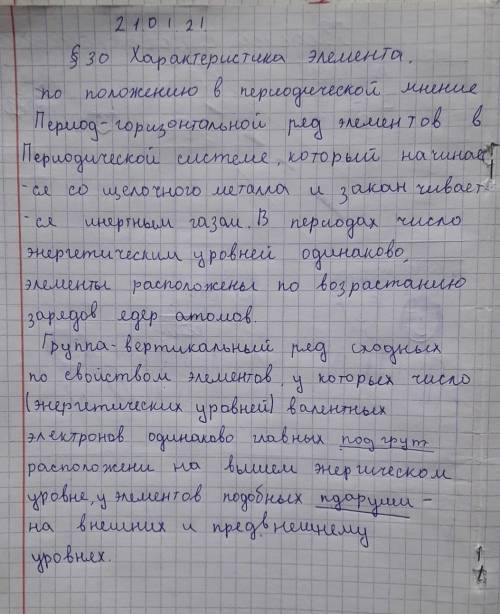 21.01.21.
§30 Характеристика элемента.
по положению в периодической мнение
Период-горизонтальной ряд элементов в
Периодической системе, который начинает
-ся со щелочного металла и заканчивает
-ся инертным газам. В периодах число
энергетическим уровней одинаково,
элементы расположены по возрастанию
зарядов ядер атомов.
Группа-вертикальный ряд сходных
по свойством элементов, у которых число
(энергетических уровней) валентных
электронов одинаково главных под груп
расположени на вышем энергическом
уровне, у элементов подобных пдаруши-
на внешних и предвнешнему
уровнях.